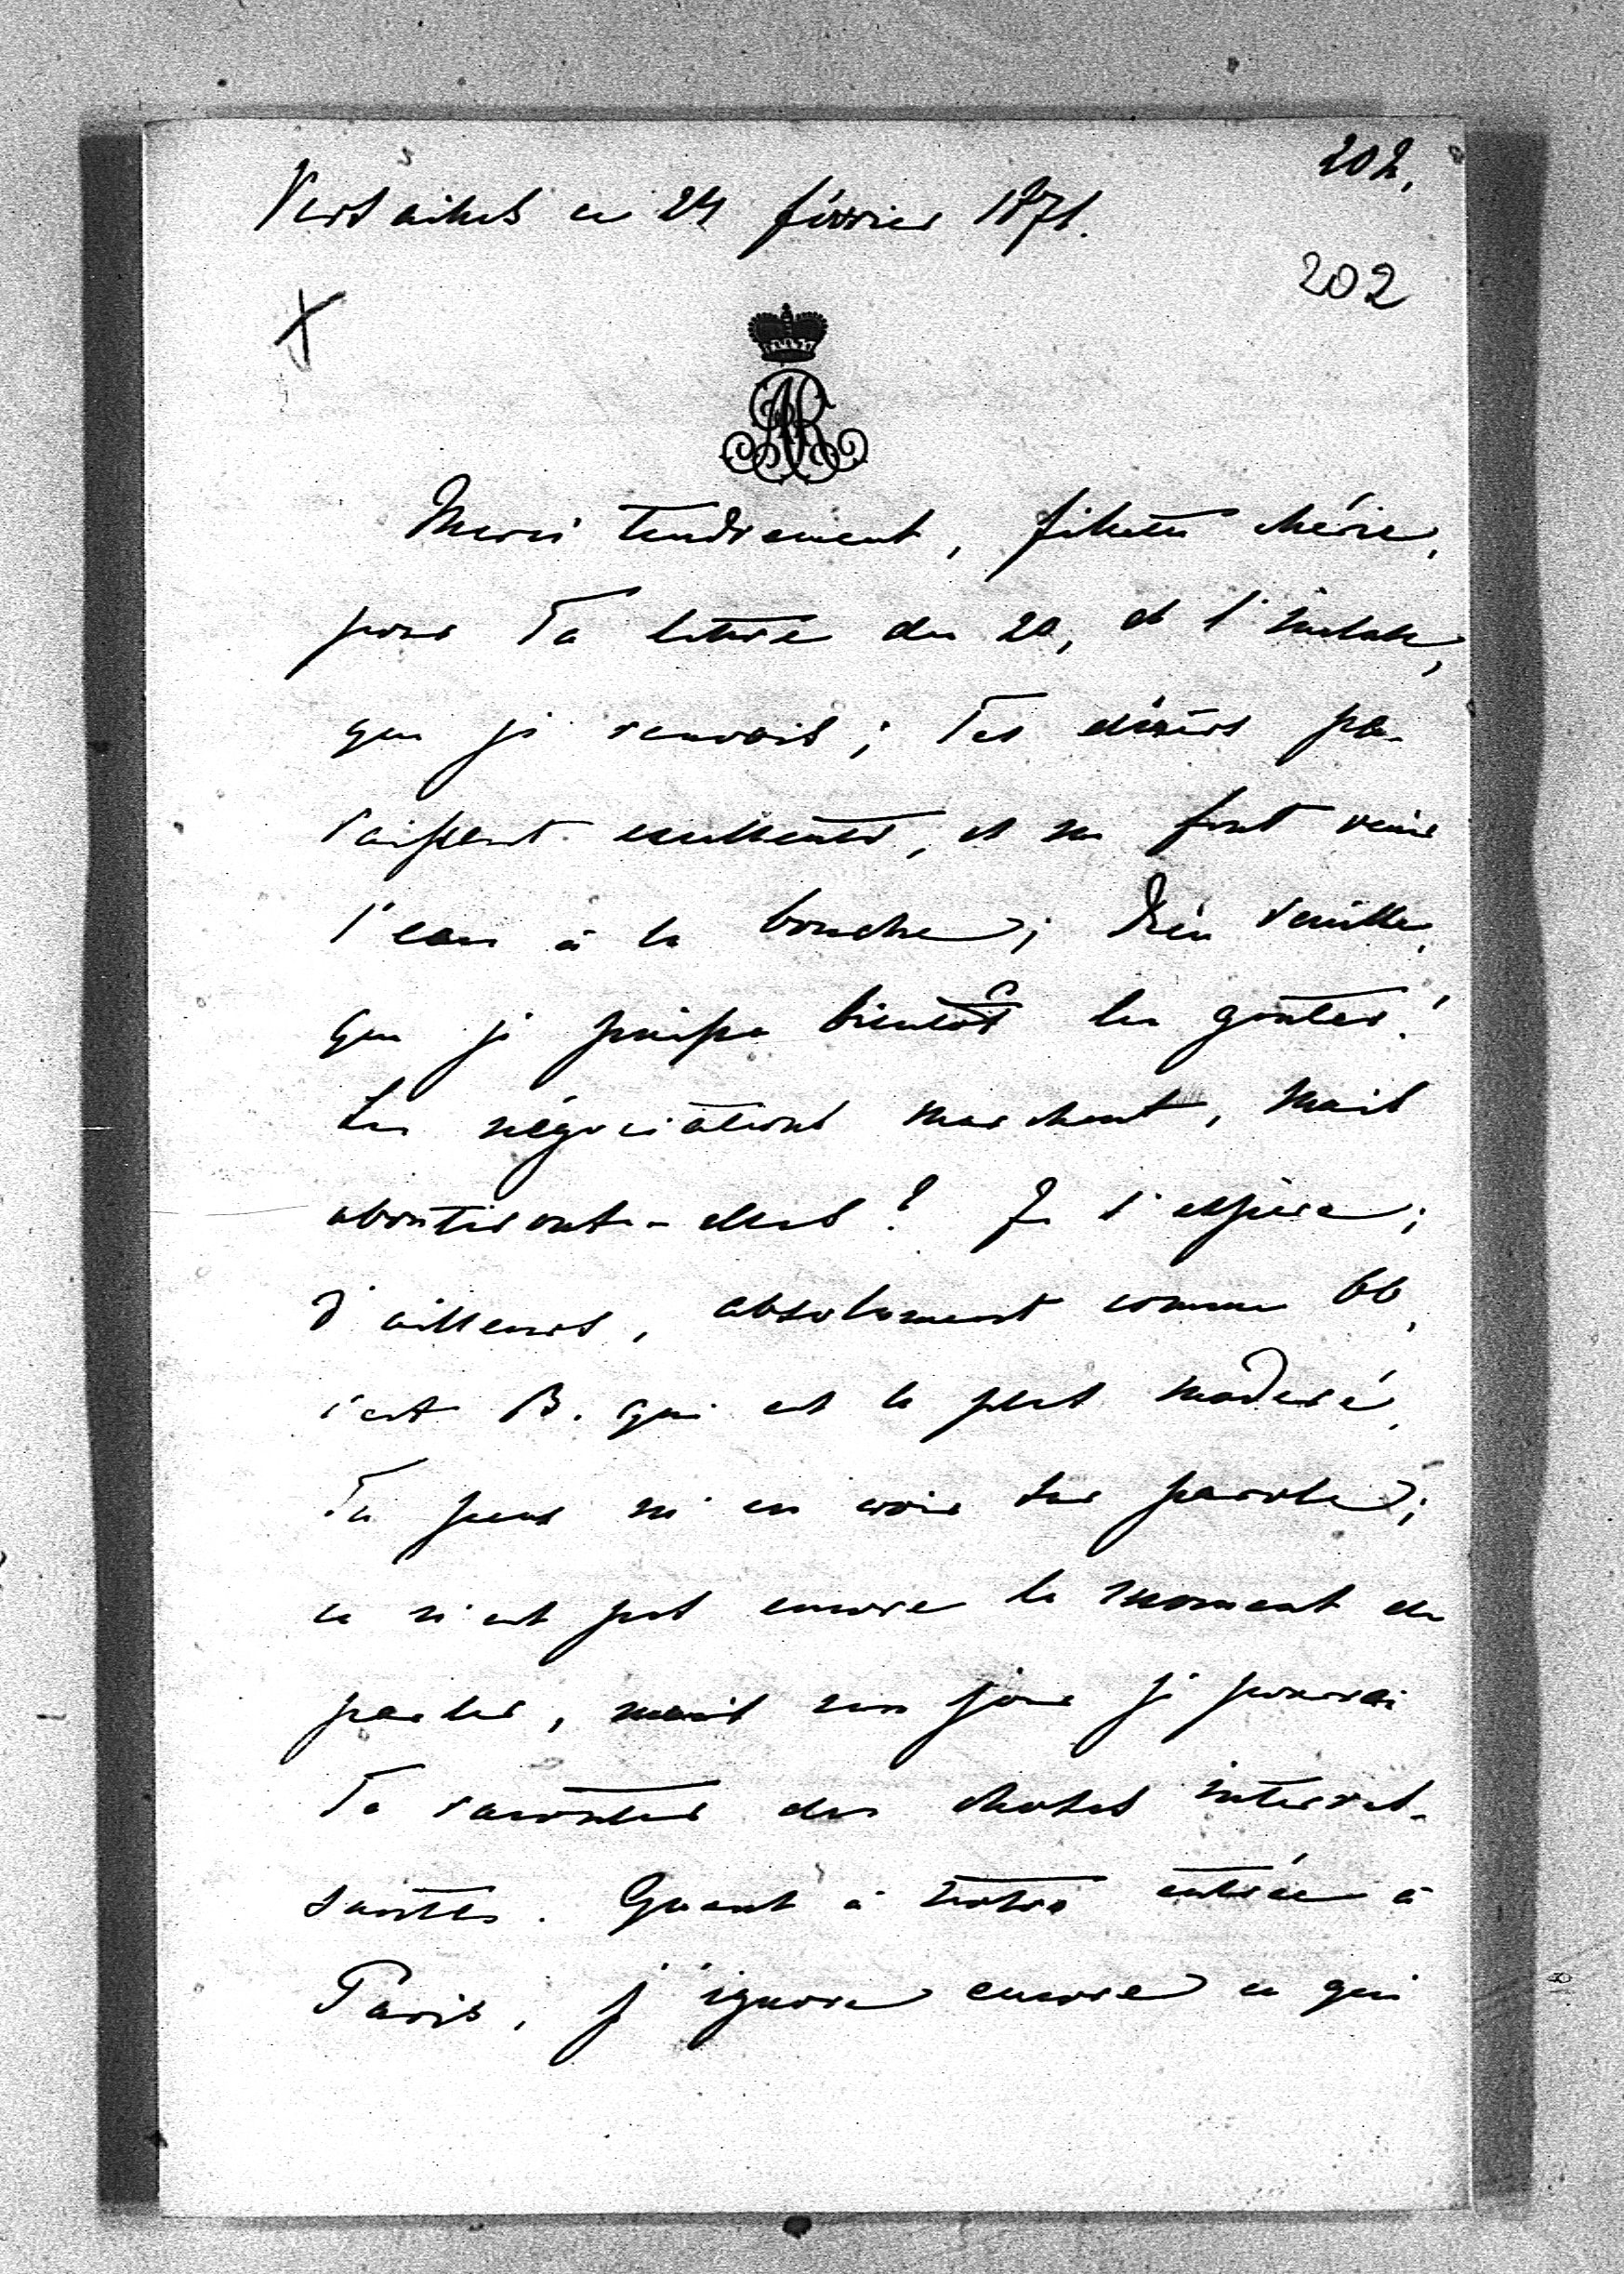 202.
Versailles ce 24 février 1871.
202
X
AR
Merci tendrement, fillette chérie,
pour Ta lettre du 20, et l'incluse,
que je renvois; Tes dîners pa-
raissent excellents, et me font venir
l'eau à la bouche; Dieu veuille,
que je puisse bientôt les goûter!
Les négociations marchent, mais
aboutiront-elles? Je l'espère;
d'ailleurs, absolument comme 66,
c'est B. qui est le plus modéré,
Tu peux m'en croire sur parole;
ce n'est pas encore le moment de
parler, mais un jour je pourrai
Te raconter des choses interes-
santes. Quant à notre entrée à
Paris, j'ignore encore ce qui